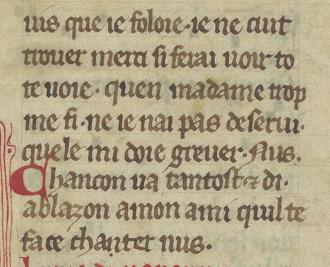 uis que ie foloie · ie ne cuit
trouer merci si ferai uoir to
te uoie · quen madame trop
me fi · ne ie nai pas deserui ·
quele mi doie greuer · Nus.
Chancon ua tantost ⁊ di ·
a blazon a mon ami quil te
face chanter nus ·